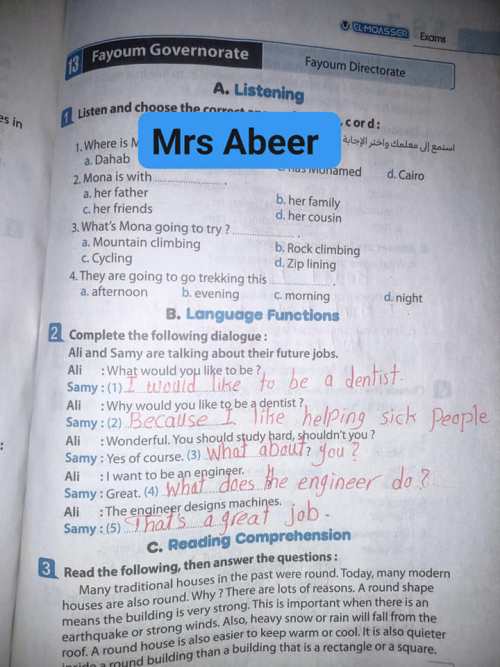 EL-MOASSER Exams
13 Fayoum Governorate Fayoum Directorate
A. Listening
1 Listen and choose the correct , c or d :
استمع إلى معلمك واختر الإجابة
Mrs Abeer
es in
1. Where is M
a. Dahab Mohamed d. Cairo
2. Mona is with ............ .
a. her father b. her family
c. her friends d. her cousin
3. What's Mona going to try ? ............ .
a. Mountain climbing b. Rock climbing
c. Cycling d. Zip lining
4. They are going to go trekking this ............ .
a. afternoon b. evening c. morning d. night
B. Language Functions
2 Complete the following dialogue :
Ali and Samy are talking about their future jobs.
Ali : What would you like to be ?
Samy : (1) I would like to be a dentist.
Ali : Why would you like to be a dentist ?
Samy : (2) Because I like helping sick People
Ali : Wonderful. You should study hard, shouldn't you ?
Samy : Yes of course. (3) What about you ?
Ali : I want to be an engineer.
Samy : Great. (4) What does the engineer do ?
Ali : The engineer designs machines.
Samy : (5) That's a great job.
C. Reading Comprehension
3 Read the following, then answer the questions :
Many traditional houses in the past were round. Today, many modern
houses are also round. Why ? There are lots of reasons. A round shape
means the building is very strong. This is important when there is an
earthquake or strong winds. Also, heavy snow or rain will fall from the
roof. A round house is also easier to keep warm or cool. It is also quieter
inside a round building than a building that is a rectangle or a square.